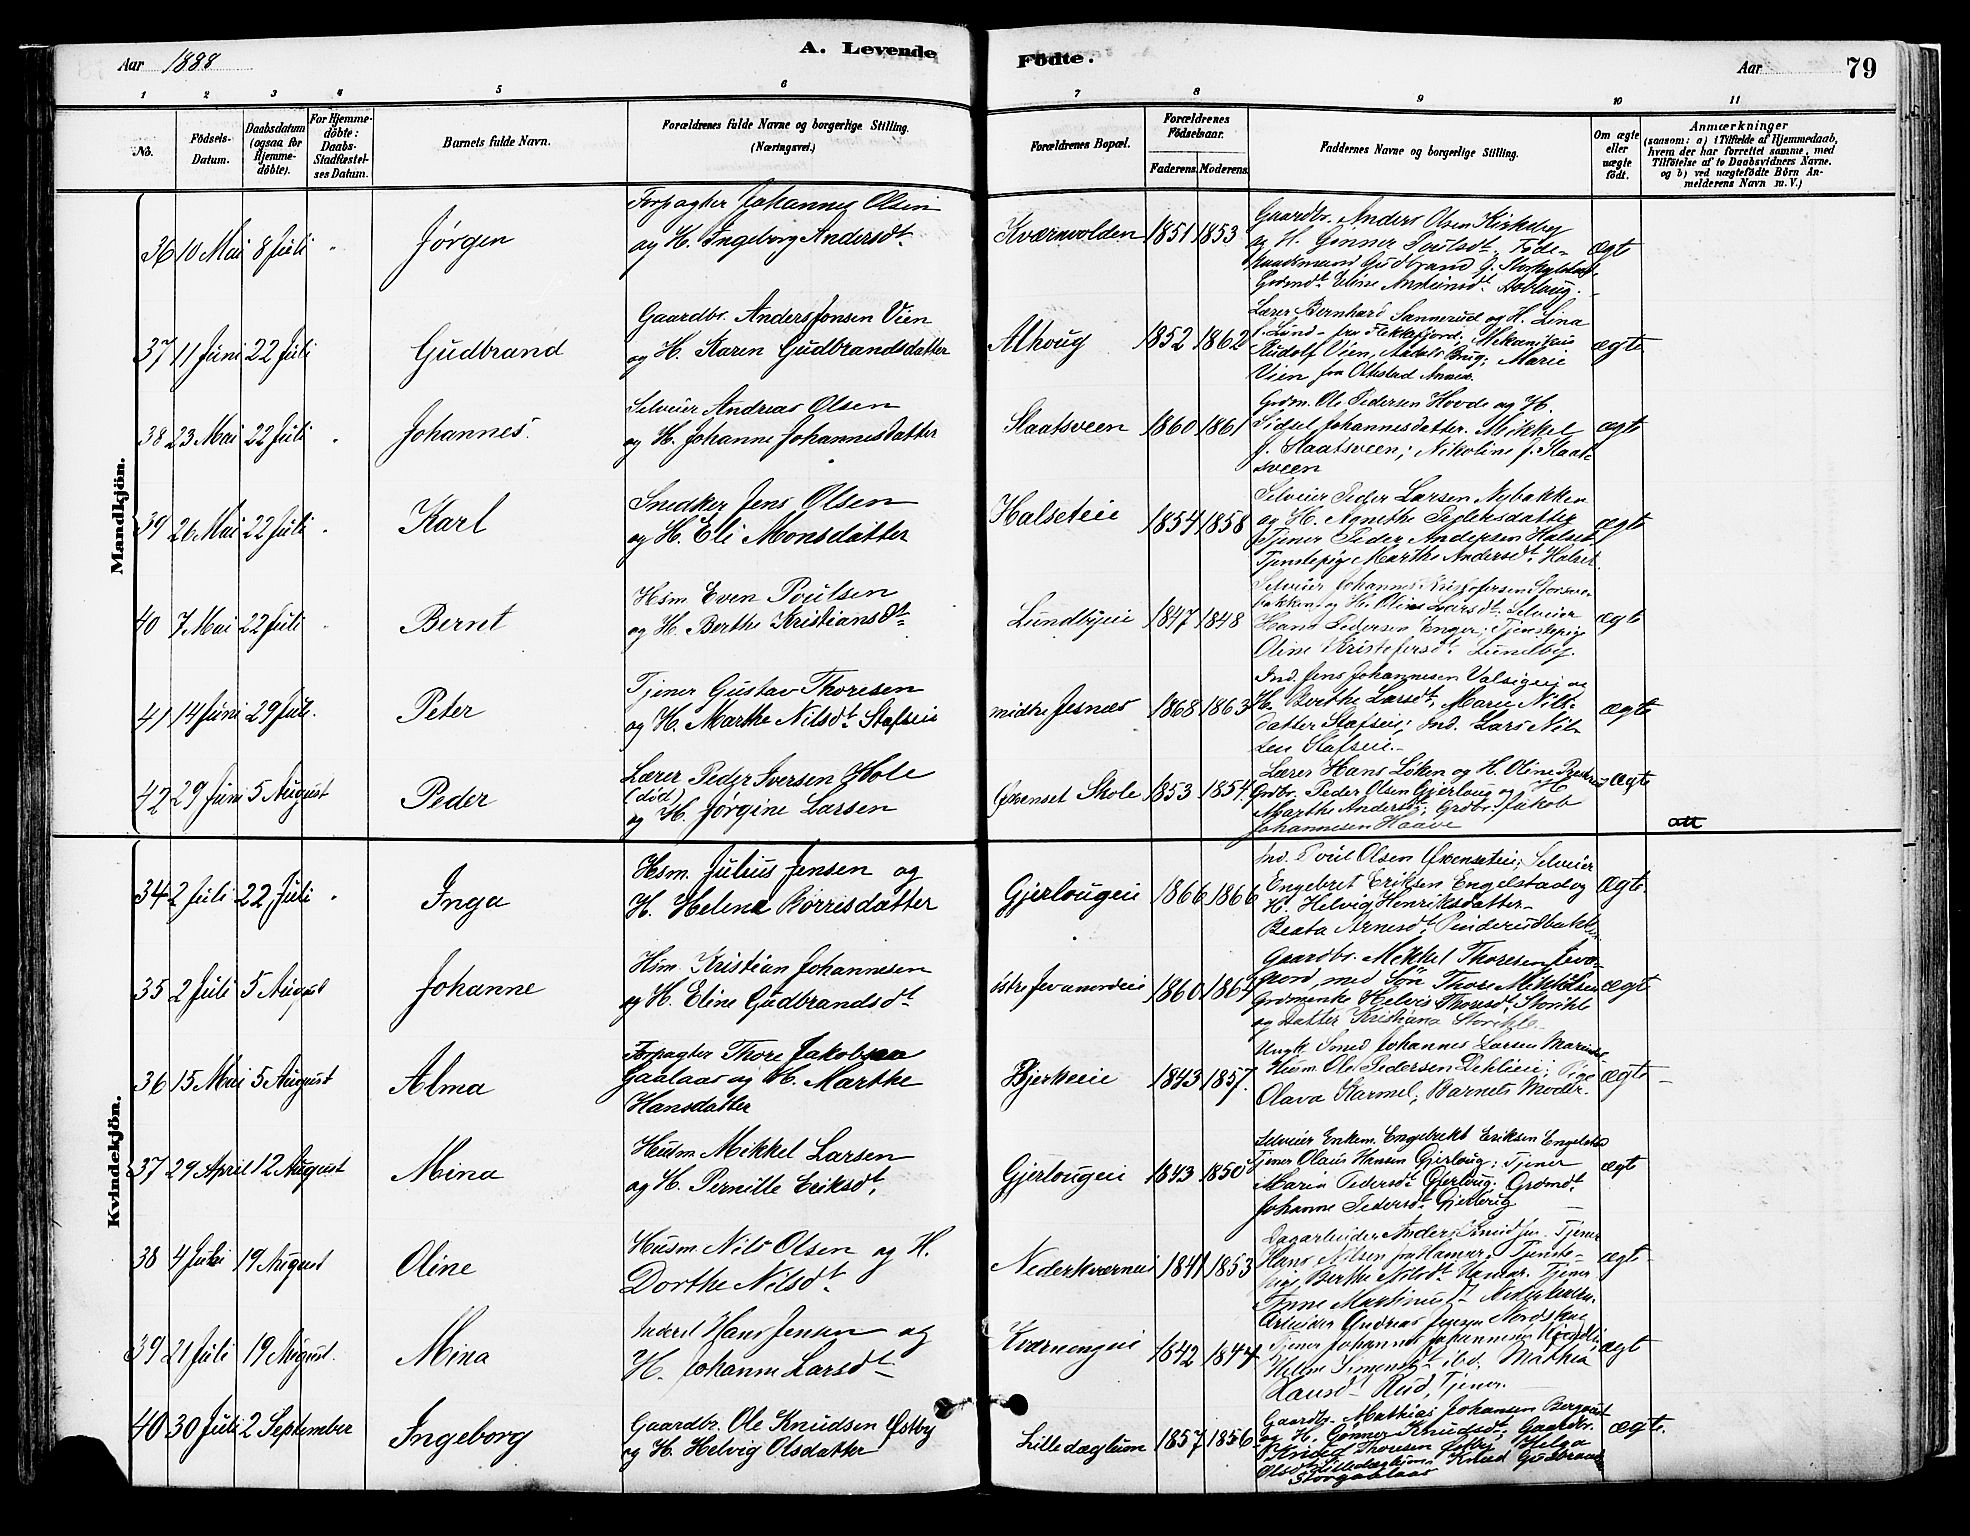 Aar 1888
A. Levende Födte.
Aar 79
1 2 3 4 5 6 7 8 9 10 11
No.
Födsels-Datum.
Daabsdatum (ogsaa for Hjemme-döbte).
For Hjemme-döbte: Daabs-Stadfæstel-ses Datum.
Barnets fulde Navn.
Forældrenes fulde Navne og borgerlige Stilling. (Næringsvei.)
Forældrenes Bopæl.
Forældrenes Födselsaar. Faderens. Moderens.
Faddernes Navne og borgerlige Stilling.
Om ægte eller uægte født.
Anmærkninger
(saasom: a) i Tilfælde af Hjemmedaab,
hvem der har forrettet samme, med
Tilføielse af to Daabsvidners Navne.
og b) ved uægtefödte Börn An-
melderens Navn m. V.)
Mandkjön.
36 10 Mai 8 Juli " Jørgen
Forpagter Johannes Olsen
og H. Ingeborg Andersdt.
Kværnvolden 1851 1853
Gaardbr. Anders Olsen Kirkeby
og H. Gønner Poulsdt.
Gudbrand
ægte
37 11 Juni 22 Juli Gudbrand
Gaardbr. Anders Jonsen Vien
og H. Karen Gudbrandsdatter
Alhoug 1852 1862
Lærer Bernhard Sannerud og H. Lina
f. Lund fra Flekkefjord; Mekanikus
Rudolf Vien, Aadals Brug; Marie
Vien fra Ottestad Annex.
ægte
38 23 Mai 22 Juli " Johannes.
Selveier Andreas Olsen
og H. Johanne Johannesdatter
Staatsveen 1860 1861
Grdm. Ole Pedersen Hovde og H.
Sidsel Johannesdatter. Mikkel
J. Staatsveen; Nikoline J. Staat-
sveen
ægte
39 26 Mai 22 Juli " Karl
Snedker Jens Olsen
og H. Eli Monsdatter
Halseteie 1854 1858
Selveier Peder Larsen Nybakken
og H. Agnethe Pedersdatter
Tjener Peder Andersen Halset
Tjenestepige Marthe Andersdt. Halset.
ægte
40 7 Mai 22 Juli " Bernt
Hsm. Even Poulsen
og H. Berthe Kristiansdt.
Lundbyeie 1847 1848
Selveier Johannes Kristofersen
og H. Oline Larsdt. Selveier
Hans Pedersen Enger; Tjenstepige
Oline Kristofersdt. Lundby.
ægte
41 14 Juni 29 Juli. Peter
Tjener Gustav Thoresen
og H. Marthe Nilsdt. Stafseie
midtre Jesnæs 1868 1863
Ind. Jens Johannesen Valsigeie og
H. Berthe Larsdt. Marie Nils-
datter Stafseie; Ind. Lars Nil-
sen Stafseie.
ægte
42 29 Juni 5 August Peder
Lærer Peder Iversen Hole
(død)
og H. Jørgine Larsen
Økenset Skole 1853 1854
Lærer Hans Løken og H. Oline
Grdbr. Peder Olsen Gjerloug og H.
Marthe Andersdt; Grdbr. Jakob
Johannesen Haave
ægte
Kvindekjön.
34 2 Juli 22 Juli " Inga
Hsm. Julius Jensen og
H. Helena Børresdatter
Gjerlougeie 1866 1866
Ind. Poul Olsen Økenseteie; Selveier
Engebret Eriksen Engelstad og
H. Helvig Henriksdatter
Beata Arnesdt.
ægte
35 2 Juli 5 August Johanne
Hsm. Kristian Johannesen
og H. Eline Gudbrandsdt.
østre Jevanordeie 1860 1864
Gaardbr. Mikkel Thoresen Jeva-
nord, med Søn Thore Mikkelsen
Helvig Thoresdt. Storihle
og Datter Kristiana Storihle
ægte
36 15 Mai 5 August Alma
Forpagter Thore Jakobsen
Gaalaas og H. Marthe
Hansdatter
Bjerkeeie 1843 1857.
Ungk. Smed Johannes Larsen
Husm. Ole Pedersen Dehlieie; Pige
Olava Starmel; Barnets Moder.
ægte
37 29 April 12 August Mina
Husm. Mikkel Larsen
og H. Pernille Eriksdt.
Gjerlougeie 1843 1850
Selveier Enkem. Engebrekt Eriksen Engelstad
Tjener Olaus Hansen Gjerloug; Tjener
Maren Pedersdt. Gjerloug. Grdmdt.
Johanne Pedersdt. Gjerloug
ægte
38 4 Juli 19 August Oline
Husm. Nils Olsen og H.
Dorthe Nilsdt.
Nederkværneie 1841 1853
Dagarbeider Anders Tjener
Hans Nilsen fra Hamar; Tjeneste-
pige Berthe Nilsdt. Hamar. Tjener
ægte
39 21 Juli 19 August. Mina
Inderst Hans Jensen og
H. Johanne Larsdt.
Kværnengeie 1842 1844
Arbeider Andreas Jensen
Tjener Johannes Johannesen
Helene Simensdt. ibd. Mathea
Hansdt. Rud, Tjener.
ægte
40 30 Juli 2 September Ingeborg
Gaardbr. Ole Knudsen Østby
og H. Helvig Olsdatter
Lilledæglum 1857 1856
Gaardbr. Mathias Johansen
og H. Gønner Knudsdt; Gaardbr.
Knud Thoresen Østby Helga
Olsdt. Lilledæglum Knud Gudbrandsen
Storgablaas
ægte.